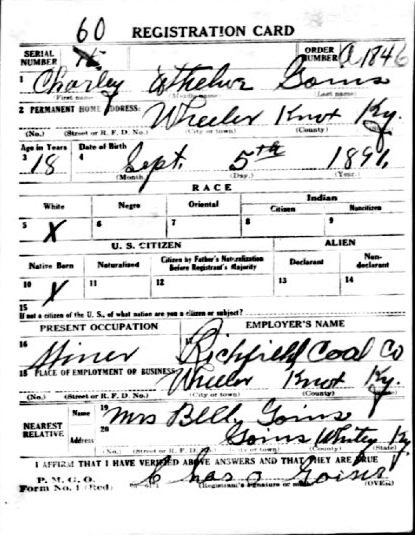 60 REGISTRATION CARD
SERIAL NUMBER ORDER NUMBER A1846
1 Charley Goins
(First name) (Middle name) (Last name)
2 PERMANENT HOME ADDRESS: Wheeler Knox Ky.
(No.) (Street or R. F. D. No.) (City or town) (County) (State)
Age in Years Date of Birth
3 18 4 Sept. 5th 1896
(Month.) (Day.) (Year.)
RACE
White Negro Oriental Indian
Citizen Noncitizen
5 X 6 7 8 9
U. S. CITIZEN ALIEN
Native Born Naturalized Citizen by Father's Naturalization Before Registrant's Majority Declarant Non-declarant
10 X 11 12 13 14
15
If not a citizen of the U. S., of what nation are you a citizen or subject?
PRESENT OCCUPATION EMPLOYER'S NAME
16 Miner 17 Richfield Coal Co
18 PLACE OF EMPLOYMENT OR BUSINESS: Wheeler Knox Ky.
(No.) (Street or R. F. D. No.) (City or town) (County) (State)
NEAREST RELATIVE Name 19 Mrs Goins
Address 20 Goins Whitley Ky
(No.) (Street or R. F. D. No.) (City or town) (County) (State)
I AFFIRM THAT I HAVE VERIFIED ABOVE ANSWERS AND THAT THEY ARE TRUE
P. M. G. O.
Form No. 1 (Red) Chas
(Registrant's signature or mark) (OVER)